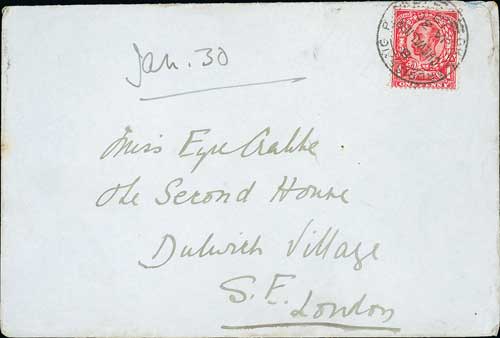 Jan. 30
Miss Eyre Crabbe
The Second House
Dulwich Village
S. E. London
ONE PENNY